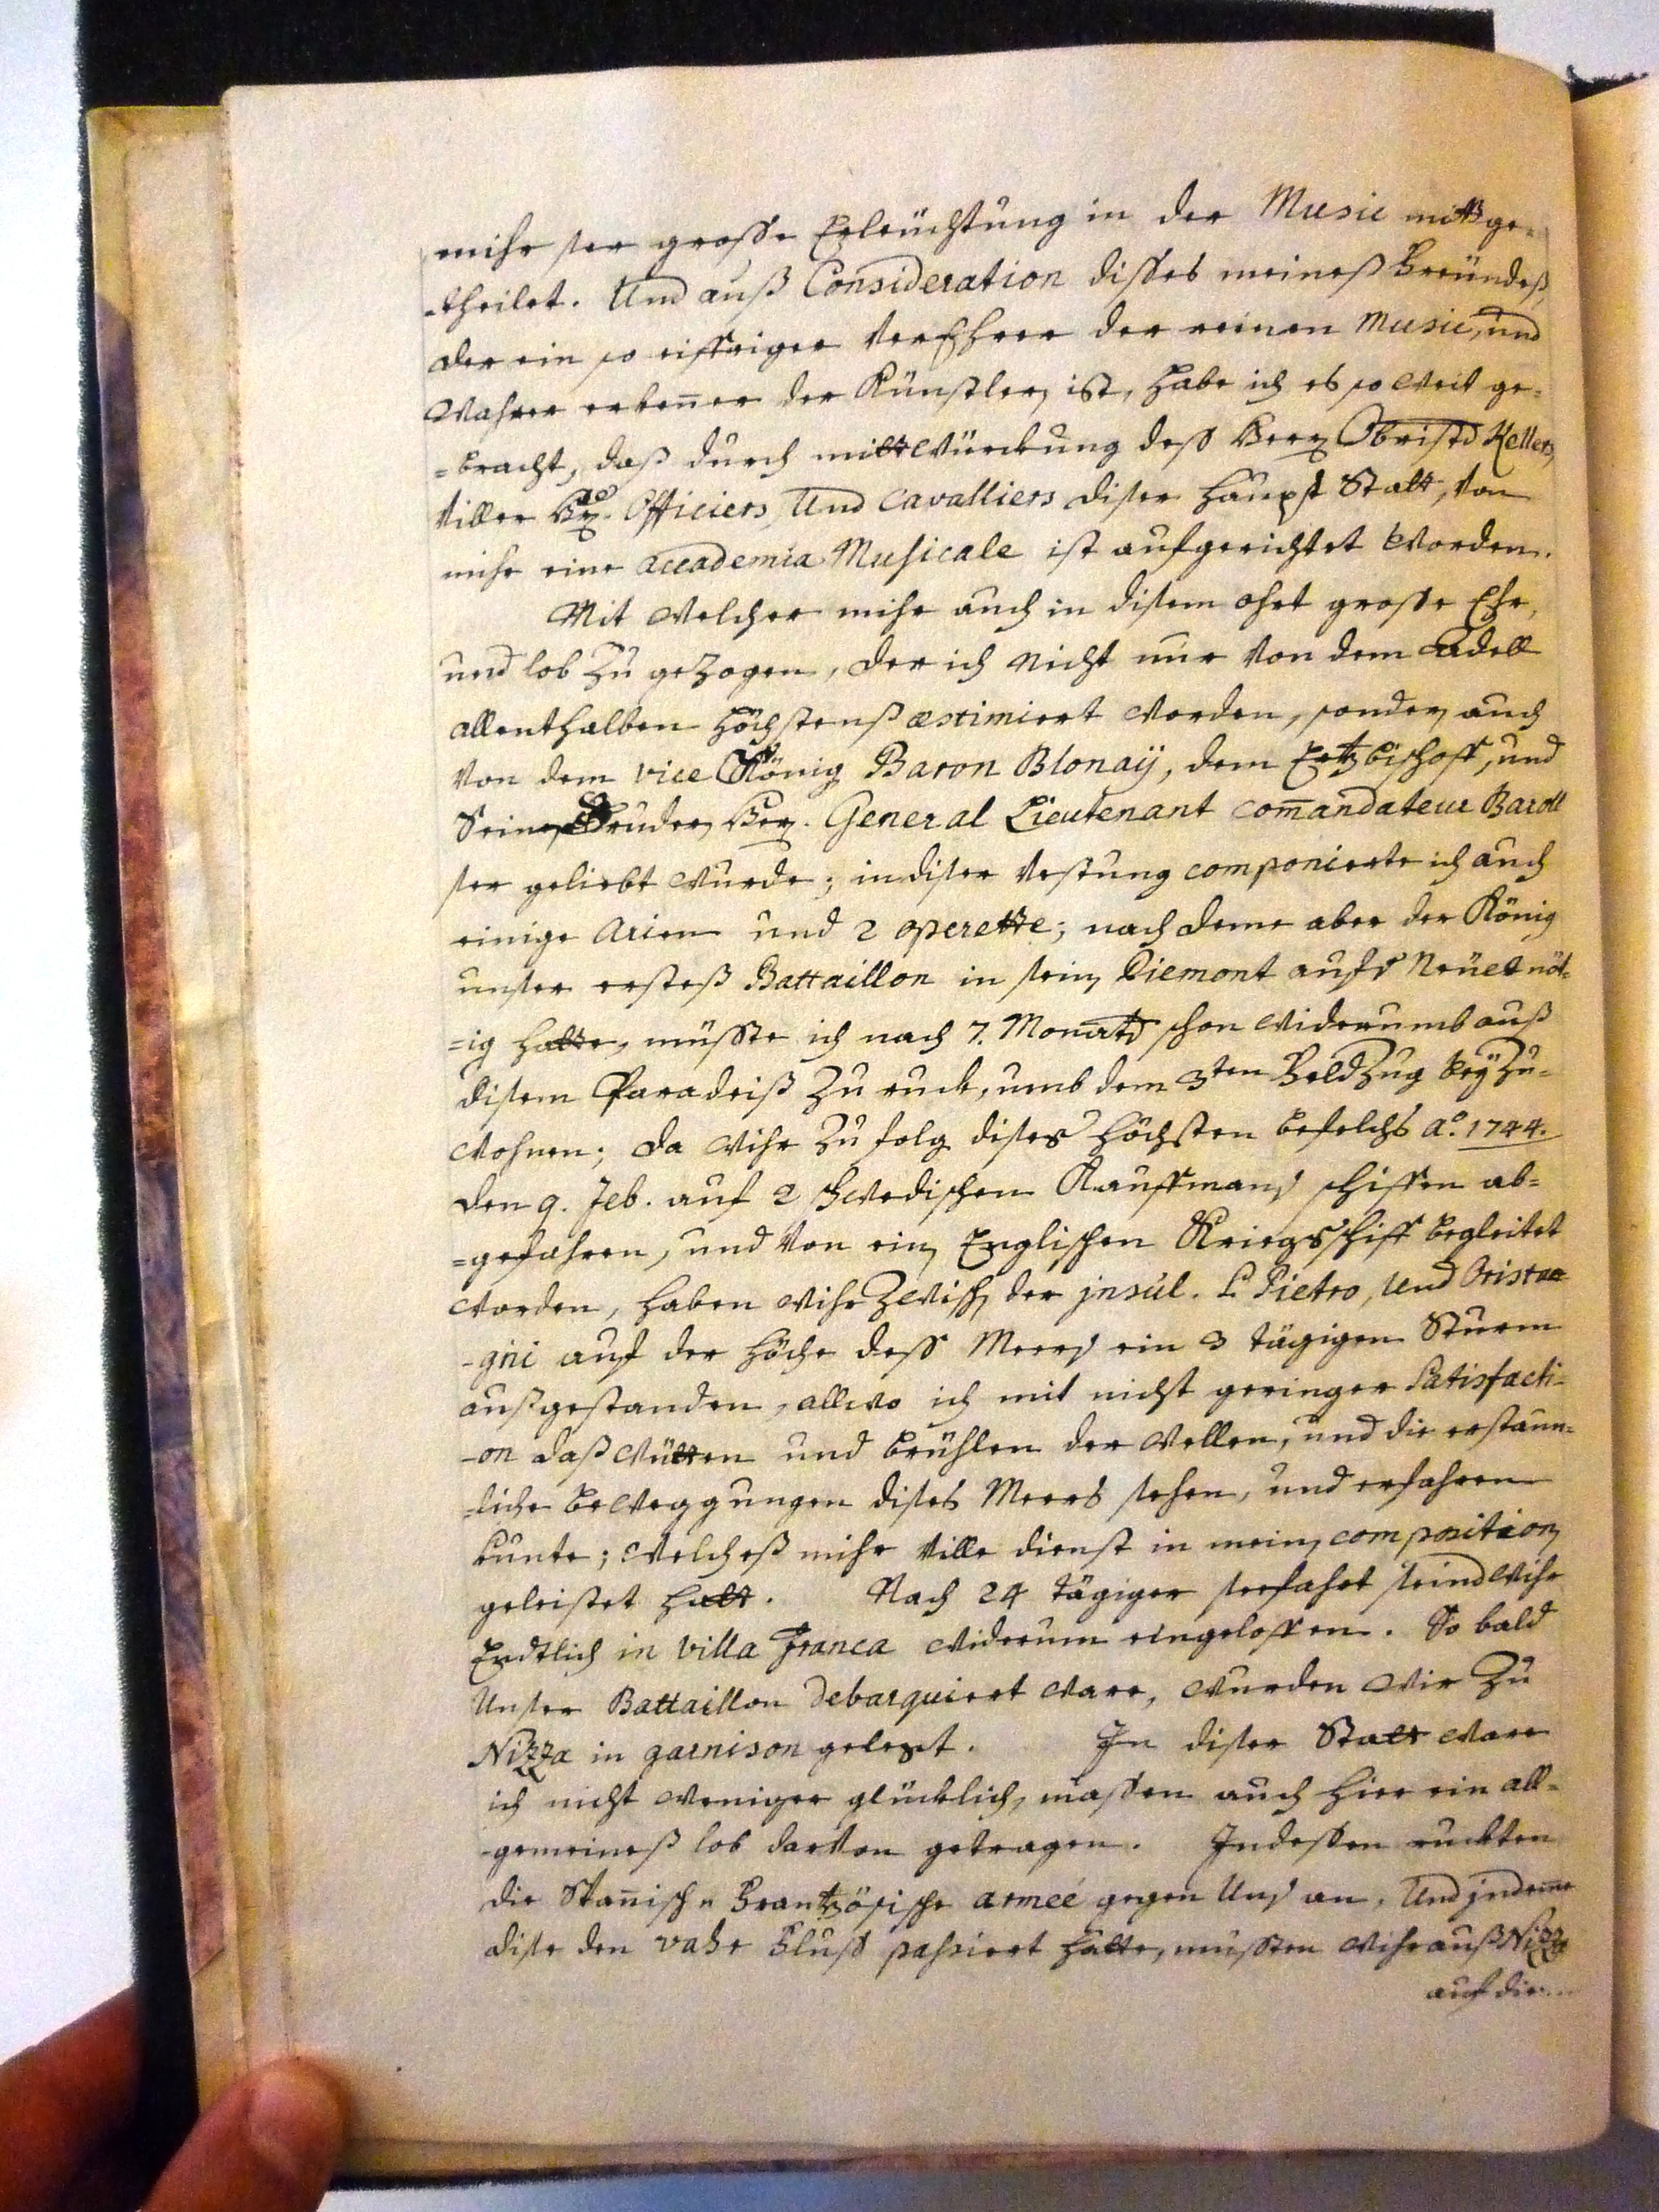 mihr ser grosse Erleüchtung in der Music mittge-
-theilet. Und auß Consideration disses meineß freündeß,
der ein so eiffriger verEhrer der reinen Music, und
wahrer erkeñer der Künstler, ist, habe ich es so weit ge-
=bracht, daß durch mittwürckung deß Herr Obrist Kellers,
viller Hr. Officiers, Und Cavalliers diser haupt Statt, von
mihr eine accademia Musicale ist aufgerichtet worden.
Mit welcher mihr auch in disem ohrt grosse Ehr,
und lob zu gezogen, der ich nicht nur von dem Adell
allenthalben höchstenß æstimiert worden, sonder, auch
von dem vice König Baron Blonaÿ, dem Ertzbischoff, und
Seinem Bruder, Herr. General Lieutenant com̄andateur Baroll
ser geliebt wurde; in diser vestung componierte ich auch
einige Arien und 2 operette; nach deme aber der König
unser ersteß Battaillon in sein, Piemont aufs Neüe nöt-
=ig hatte, müsste ich nach 7. Monats schon widerumb auß
disem Paradeiß zu ruck, umb dem 3ten feldzug beÿ zu-
wohnen; da wihr zu folg dises höchsten befelchs a.o 1744.
den 9. feb. auf 2 schwedischen Kauffmans schiffen ab-
=gefahren, und von ein, Englischen Kriegsschiff begleitet
worden, haben wihr zwisch, der jnsul. S. Pietro, Und Orista-
-gni auf der höche deß Meers ein 3 tägigen Sturm
außgestanden, allwo ich mit nicht geringer Satisfacti-
-on daß wütten und brühlen der wellen, und die erstaun-
-liche beweggungen dises Meers sehen, und erfahren
kunte; welcheß mihr ville dienst in mein, composition,
geleistet hatt. Nach 24 tägiger seefahrt seind wihr
Endtlich in villa franca widerum eingeloffen. So bald
Unser Battaillon debarquiert ware, wurden wir zu
Nizza in garnison gelegt. In diser Statt ware
ich nicht weniger glücklich, massen auch hier ein all-
-gemeineß lob darvon getragen. Indessen ruckten
die Spañisch u frantzösische armeé gegen Uns an, Und jndeme
dise den vahr fluß passiert hatte, mussten wihr auß Nizza
auf die...